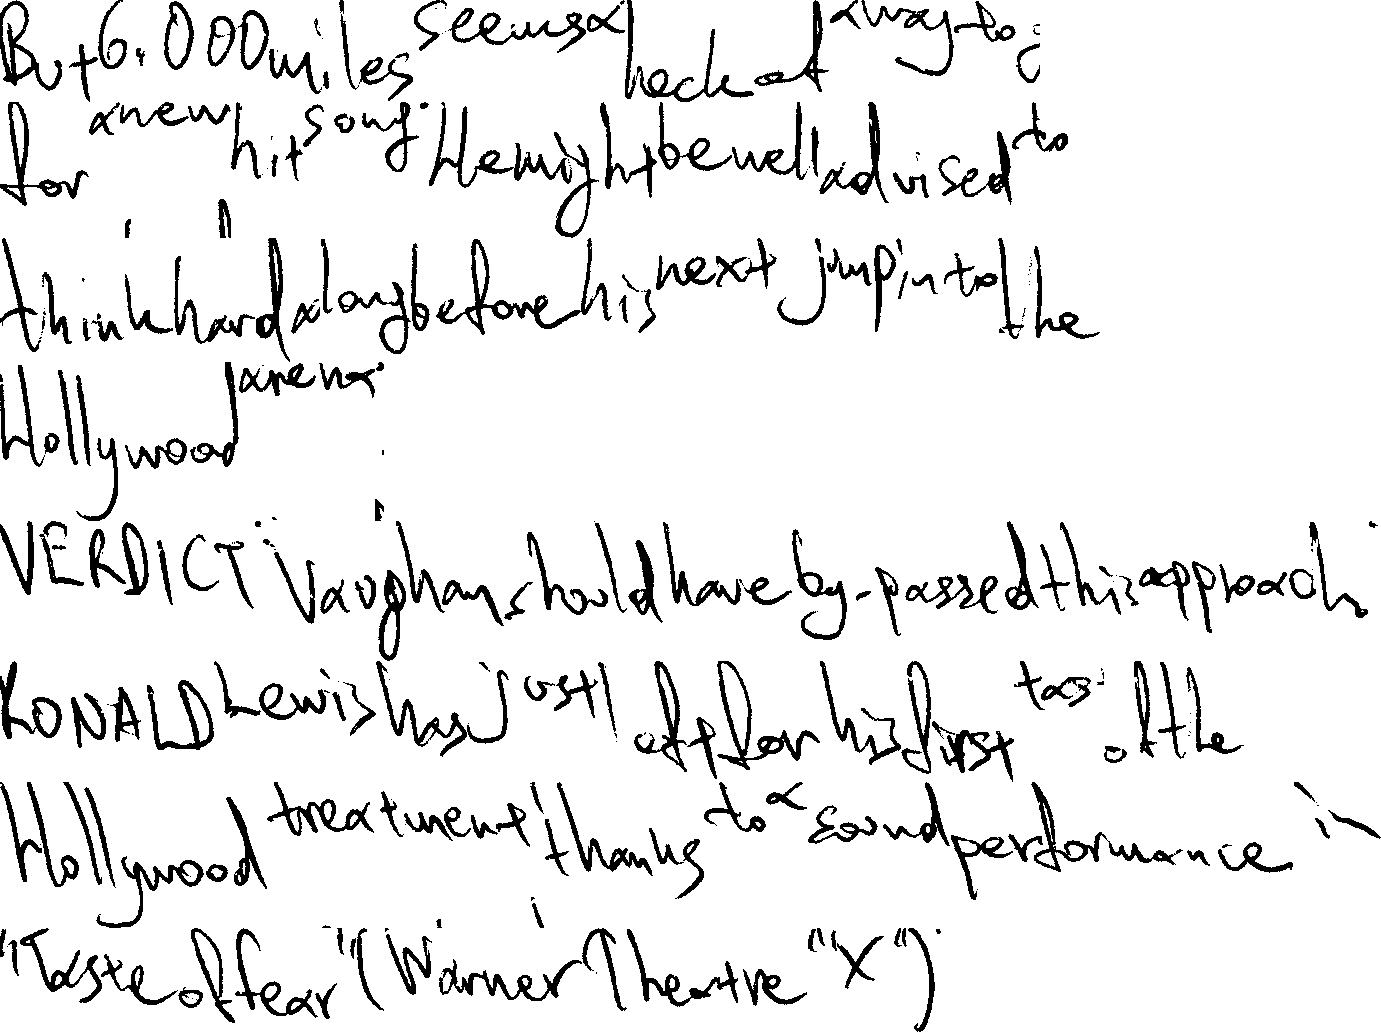 But 6,000 miles seems a heck of a way to g
for a new hit song. He might be well advised to
think hard a long before his next jump into the
Hollywood arena.
VERDICT: Vaughan should have by-passed this approach.
RONALD Lewis has just left for his first tas of the
Hollywood treatment thanks to a sound performance in
"Taste of fear" (Warner Theatre "X").